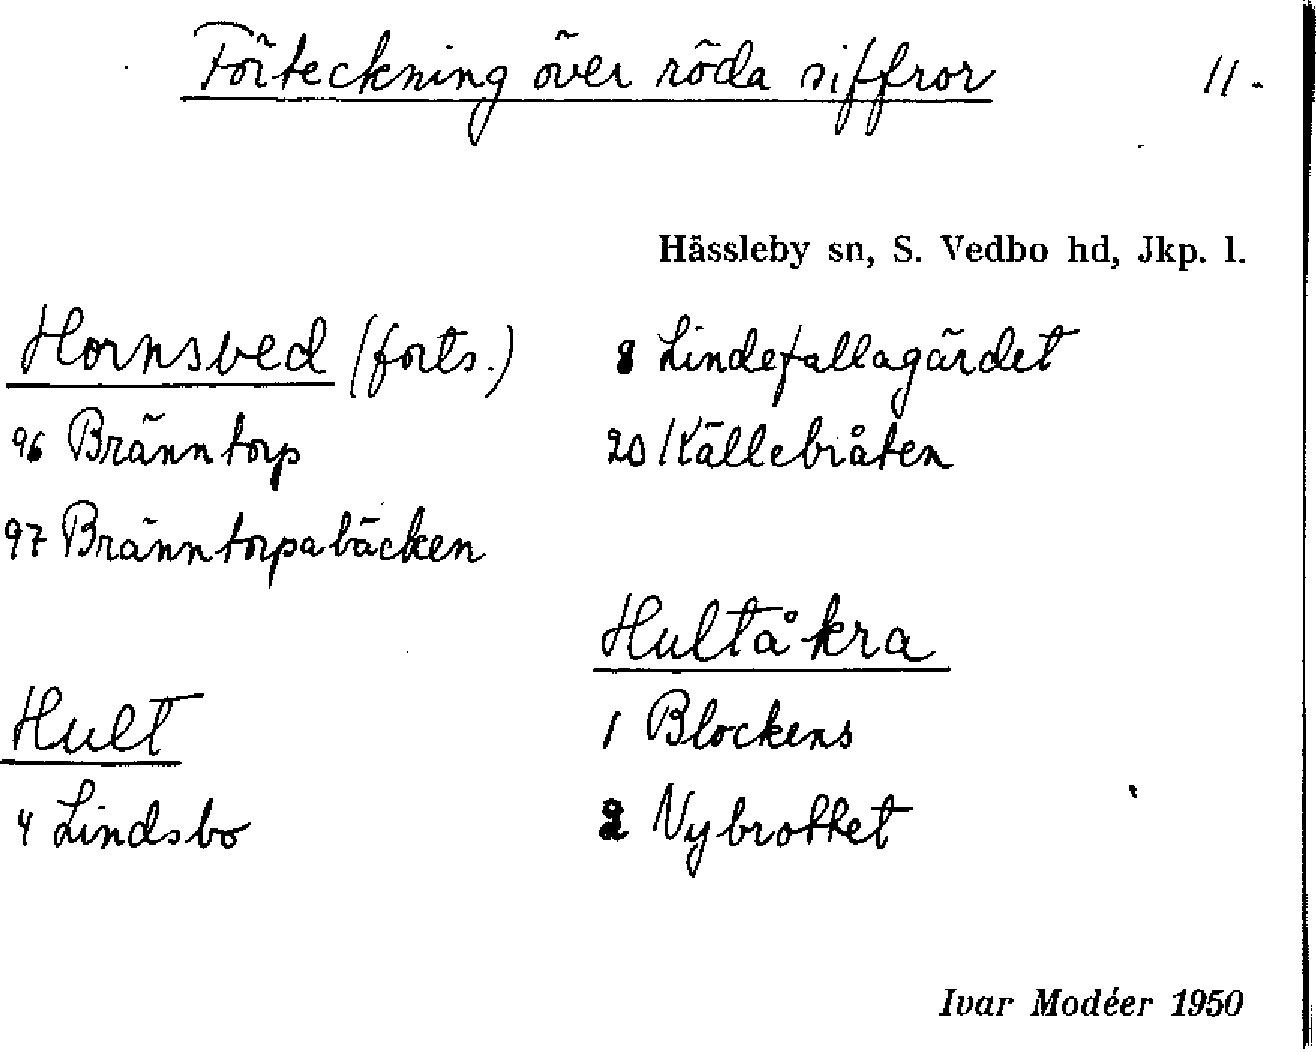 Förteckning över röda siffror 11.
Hässleby sn, S. Vedbo hd, Jkp. l.
Hornsved (forts.)
96 Bränntorp
97 Bränntorpabäcken
Hult
4 Lindsbo
8 Lindefallagärdet
20 Källebråten
Hultåkra
1 Blockens
2 Nybrottet
Ivar Modéer 1950